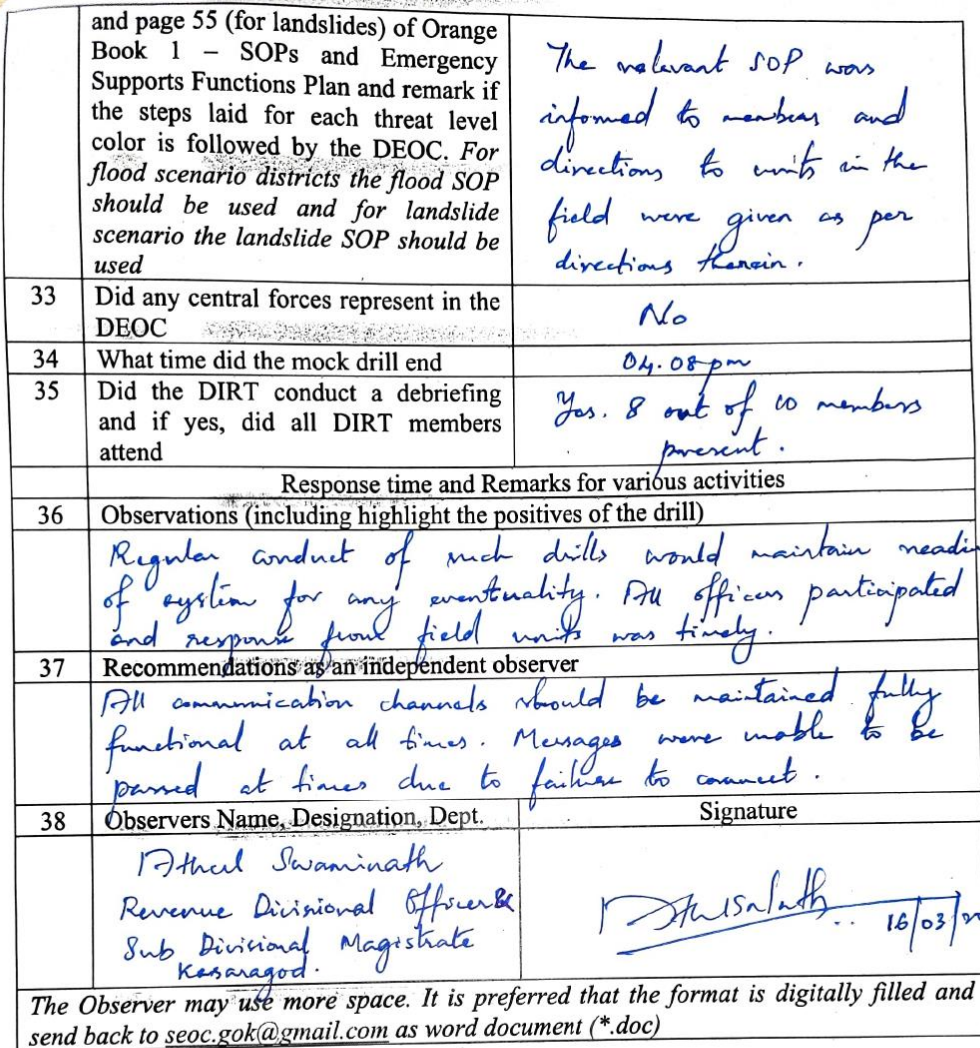 and page 55 (for landslides) of Orange
Book 1 – SOPs and Emergency
Supports Functions Plan and remark if
the steps laid for each threat level
color is followed by the DEOC. For
flood scenario districts the flood SOP
should be used and for landslide
scenario the landslide SOP should be
used
The relevant SOP was
informed to members and
directions to units in the
field were given as per
directions therein.
33 Did any central forces represent in the
DEOC
No
34 What time did the mock drill end 04.08pm
35 Did the DIRT conduct a debriefing
and if yes, did all DIRT members
attend
Yes. 8 out of 10 members
present.
Response time and Remarks for various activities
36 Observations (including highlight the positives of the drill)
Regular conduct of such drills would maintain readi
of system for any eventuality. All officers participated
and response from field units was timely.
37 Recommendations as an independent observer
All communication channels should be maintained fully
functional at all times. Messages were unable to be
passed at times due to failure to connect.
38 Observers Name, Designation, Dept. Signature
Athul Swaminath
Revenue Divisional Officer &
Sub Divisional Magistrate
Kasaragod.
16/03/
The Observer may use more space. It is preferred that the format is digitally filled and
send back to seoc.gok@gmail.com as word document (*.doc)